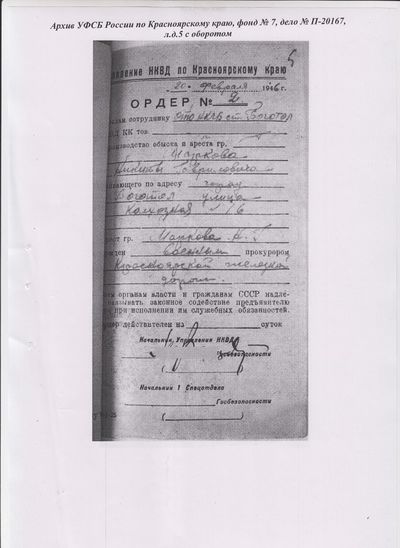 Архив УФСБ России по Красноярскому краю, фонд № 7, дело № П-20167,
л.д.5 с оборотом
5
вление НКВД по Красноярскому краю
20 февраля 1946 г.
ОРДЕР № 2
сотруднику ст. Боготол
КК тов.
оизводство обыска и ареста гр.
Маркова
Никиты
ающего по адресу город
Боготол улица
Колхозная 16
ест гр. Маркова Н. Г
Военным прокурором
Красноярской железной
дороги
ем органам власти и гражданам СССР надле-
казывать законное содействие предъявителю
при исполнении им служебных обязанностей.
дер действителен на суток
Начальник Управления НКВД
Госбезопасности
Начальник 1 Спецотдела
Госбезопасности